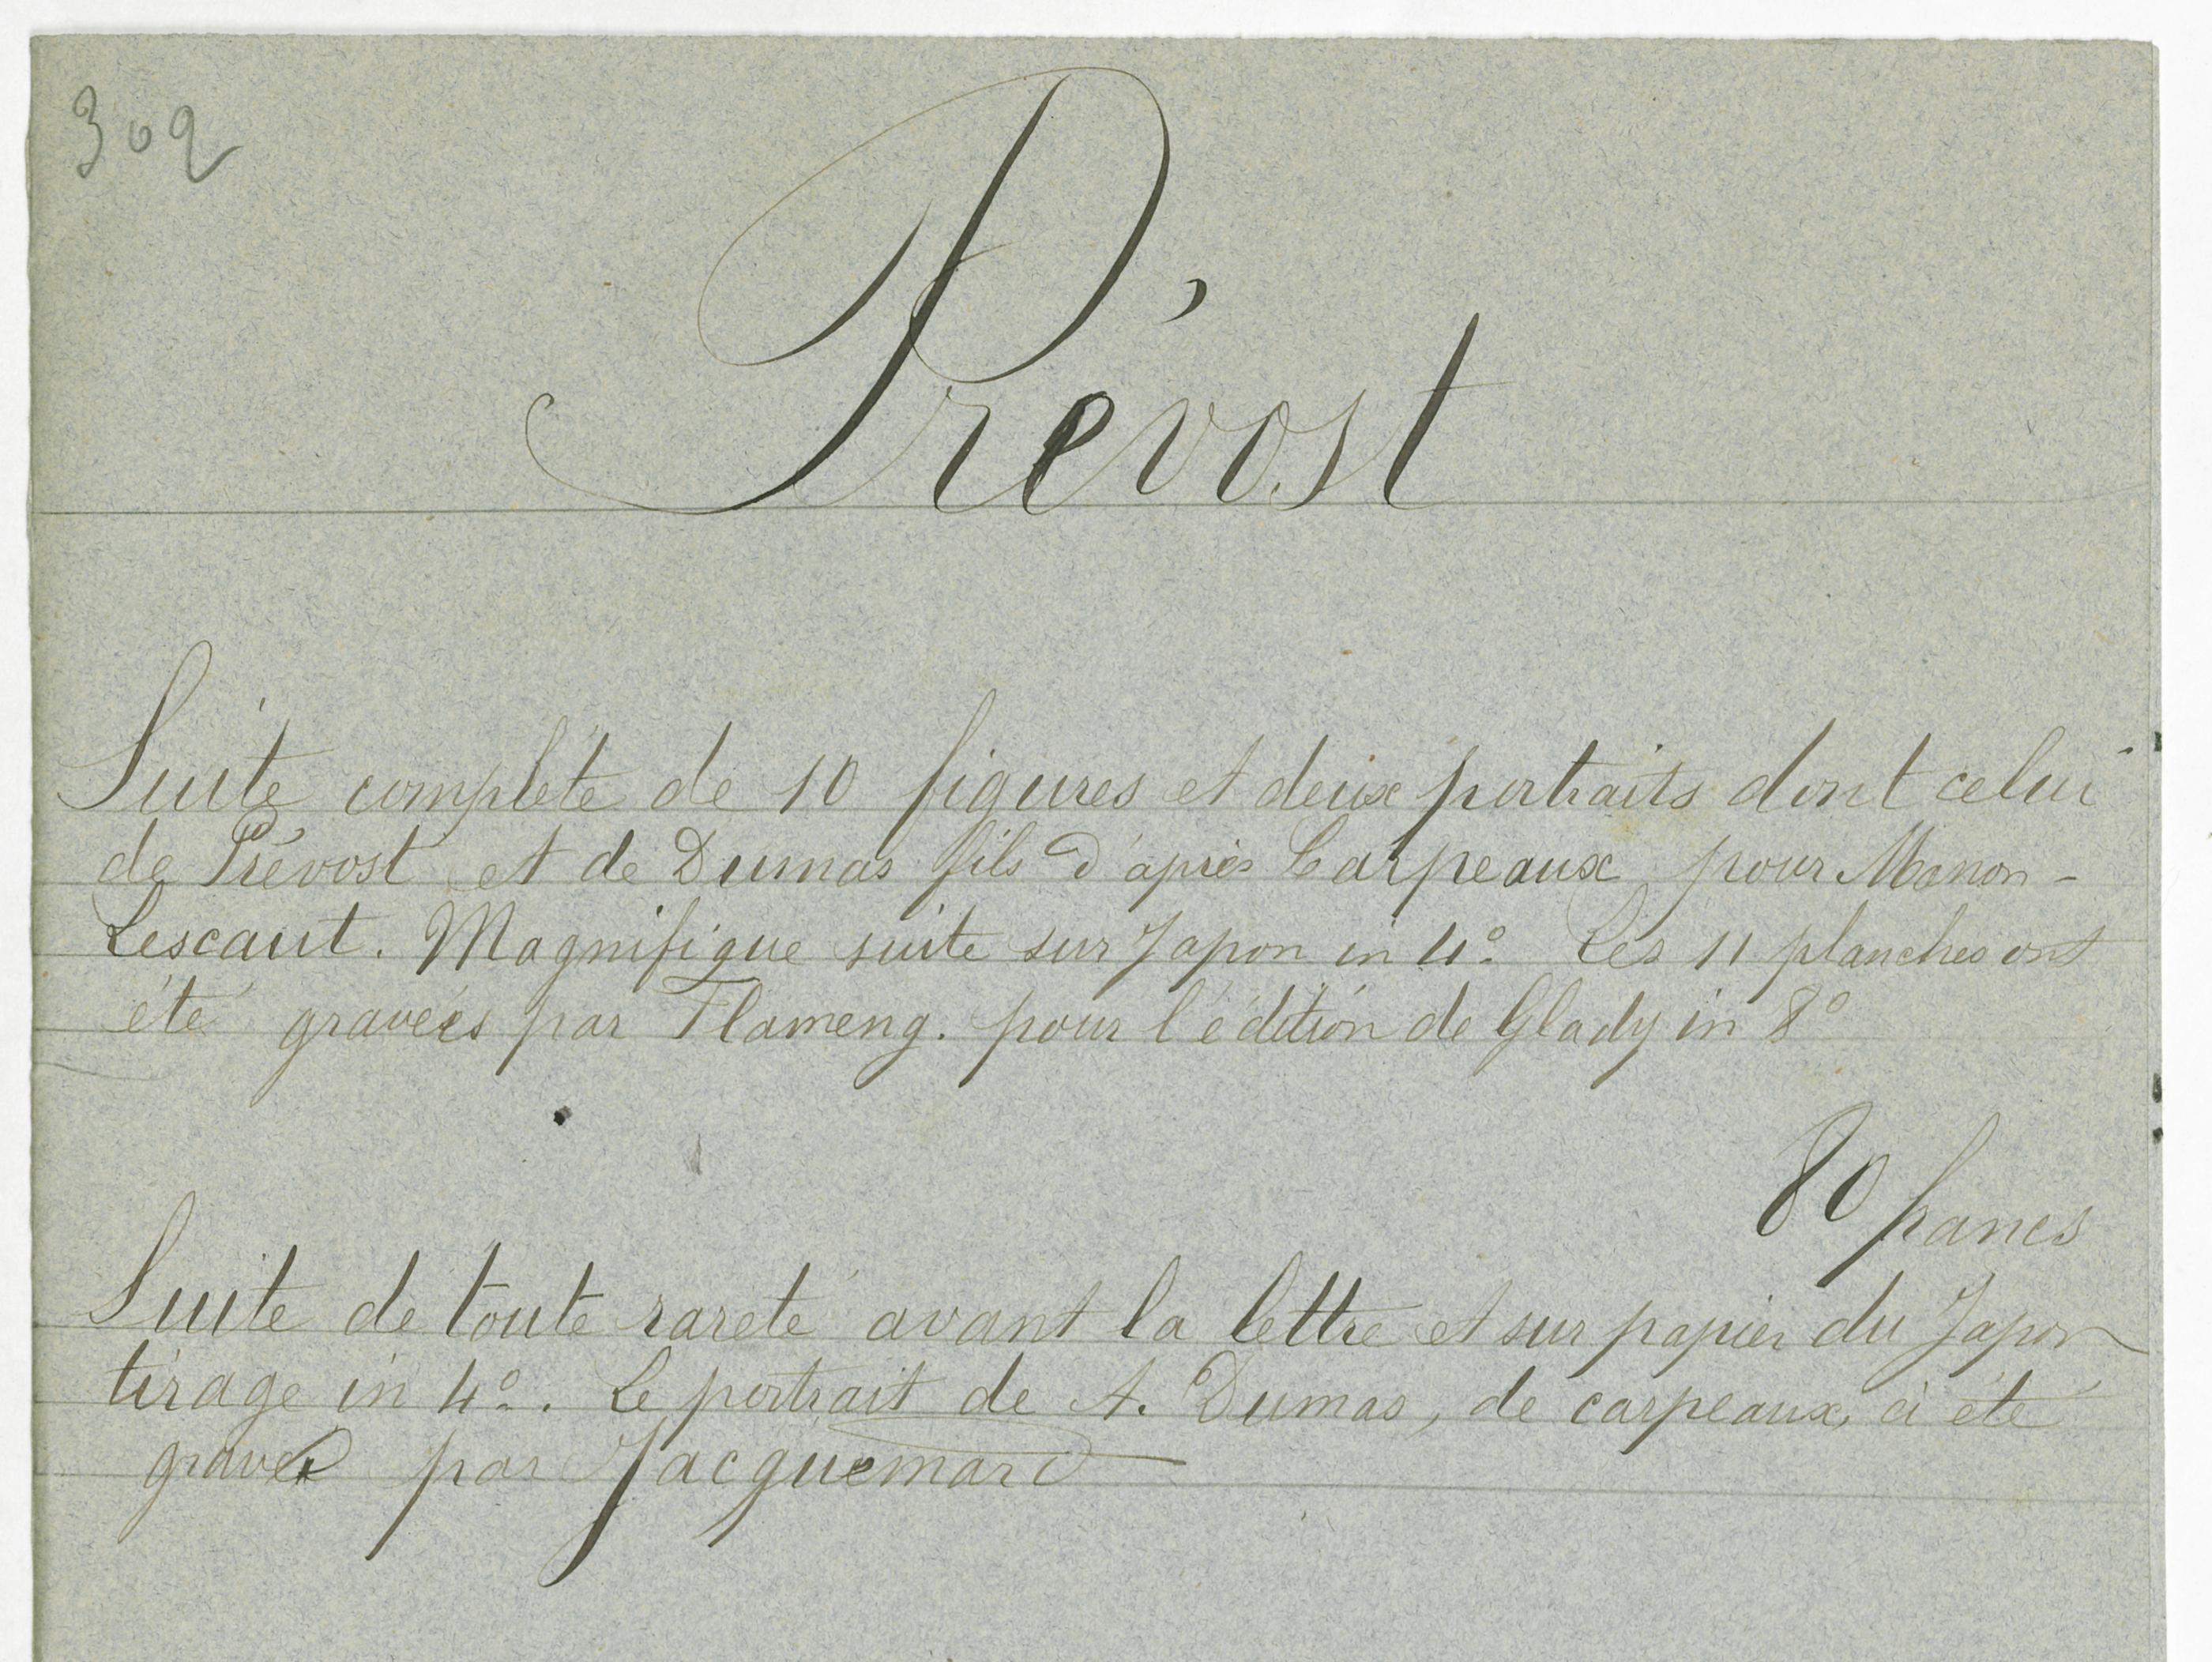 302
Prévost
Suite complète de 10 figures et deux portraits dont celui
de Prévost et de Dumas fils d'après Carpeaux pour Manon-
Lescaut. Magnifique suite sur Japon in 4º. Les 11 planches ont
été gravées par Flameng. pour l'édition de Glady in 8º
80 francs
Suite de toute rareté avant la lettre et sur papier du Japon
tirage in 4º. Le portrait de A. Dumas, de carpeaux, a été
gravé par Jacquemard